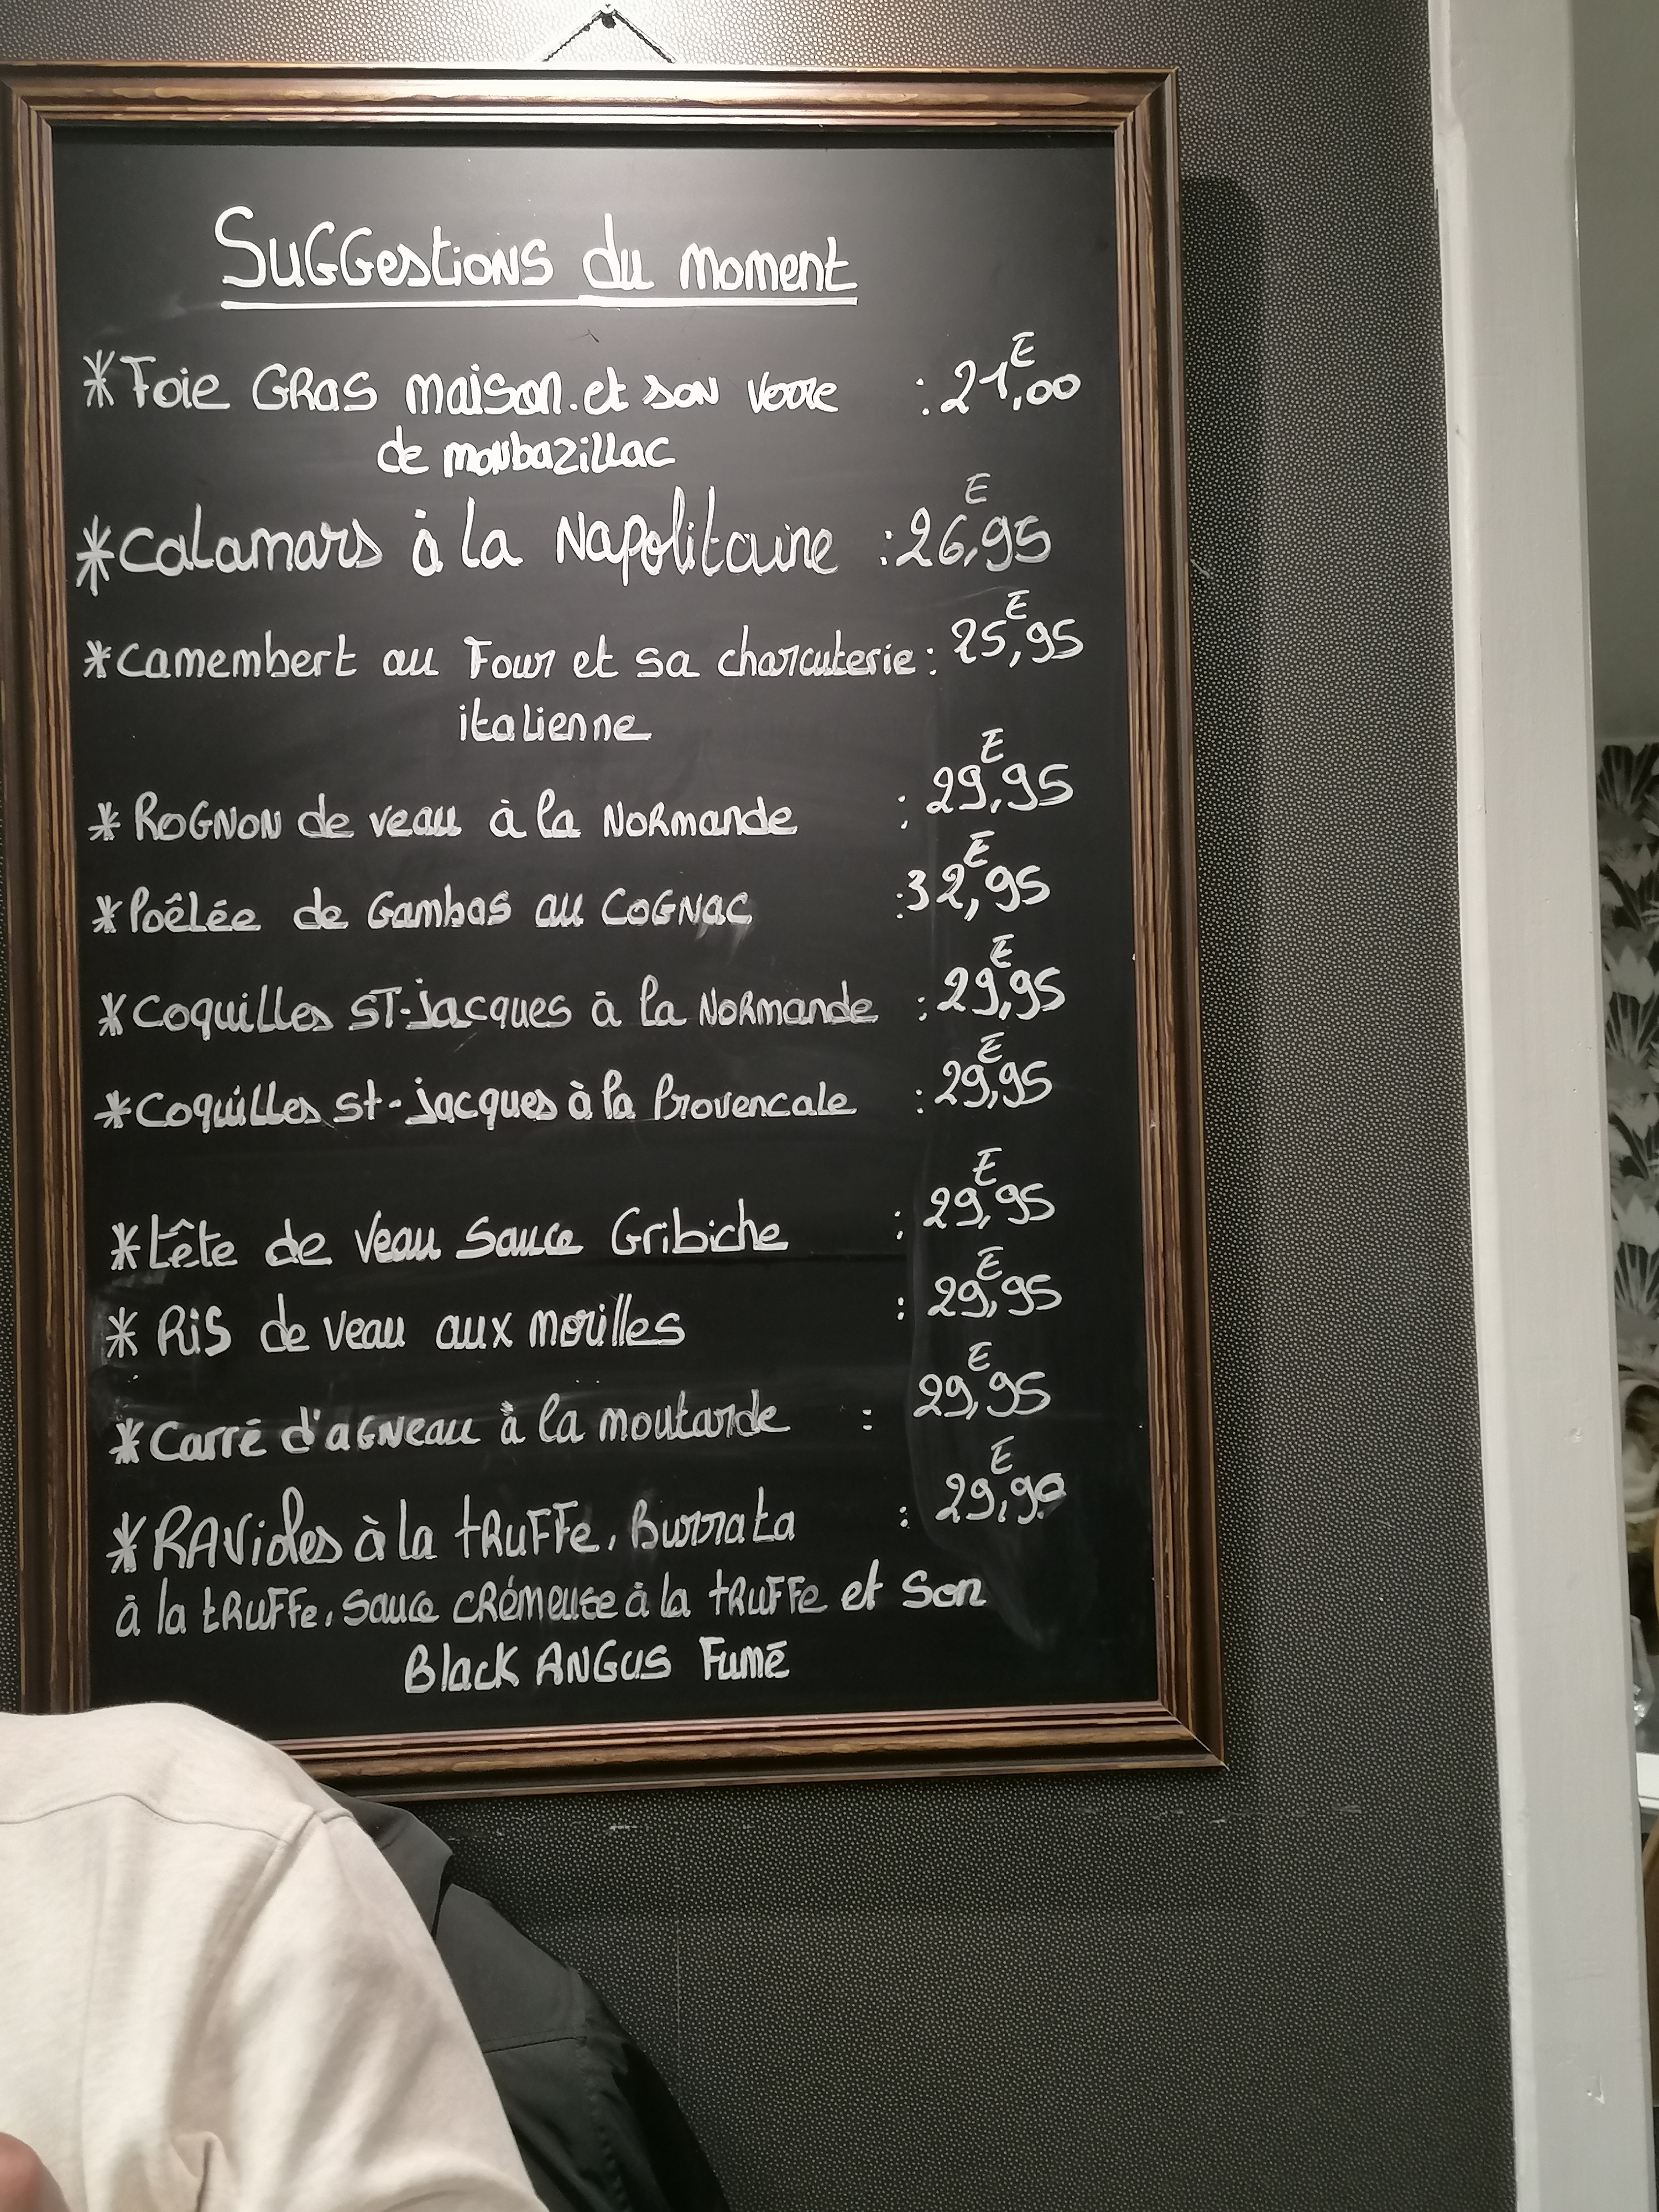 Suggestions du moment
* Foie Gras maison et son verre : 21,00 E
de monbazillac
* Calamars à la Napolitaine : 26,95 E
* Camembert au Four et sa charcuterie : 25,95 E
italienne
* Rognon de veau à la Normande : 29,95 E
* Poêlée de Gambas au Cognac : 32,95 E
* Coquilles ST-jacques à la Normande : 29,95 E
* Coquilles st-jacques à la Provencale : 29,95 E
* tête de veau sauce Gribiche : 29,95 E
* Ris de veau aux morilles : 29,95 E
* Carré d'agneau à la moutarde : 29,95 E
* Ravioles à la truffe, Burrata : 29,90 E
à la truffe, sauce crémeuse à la truffe et son
Black Angus Fumé